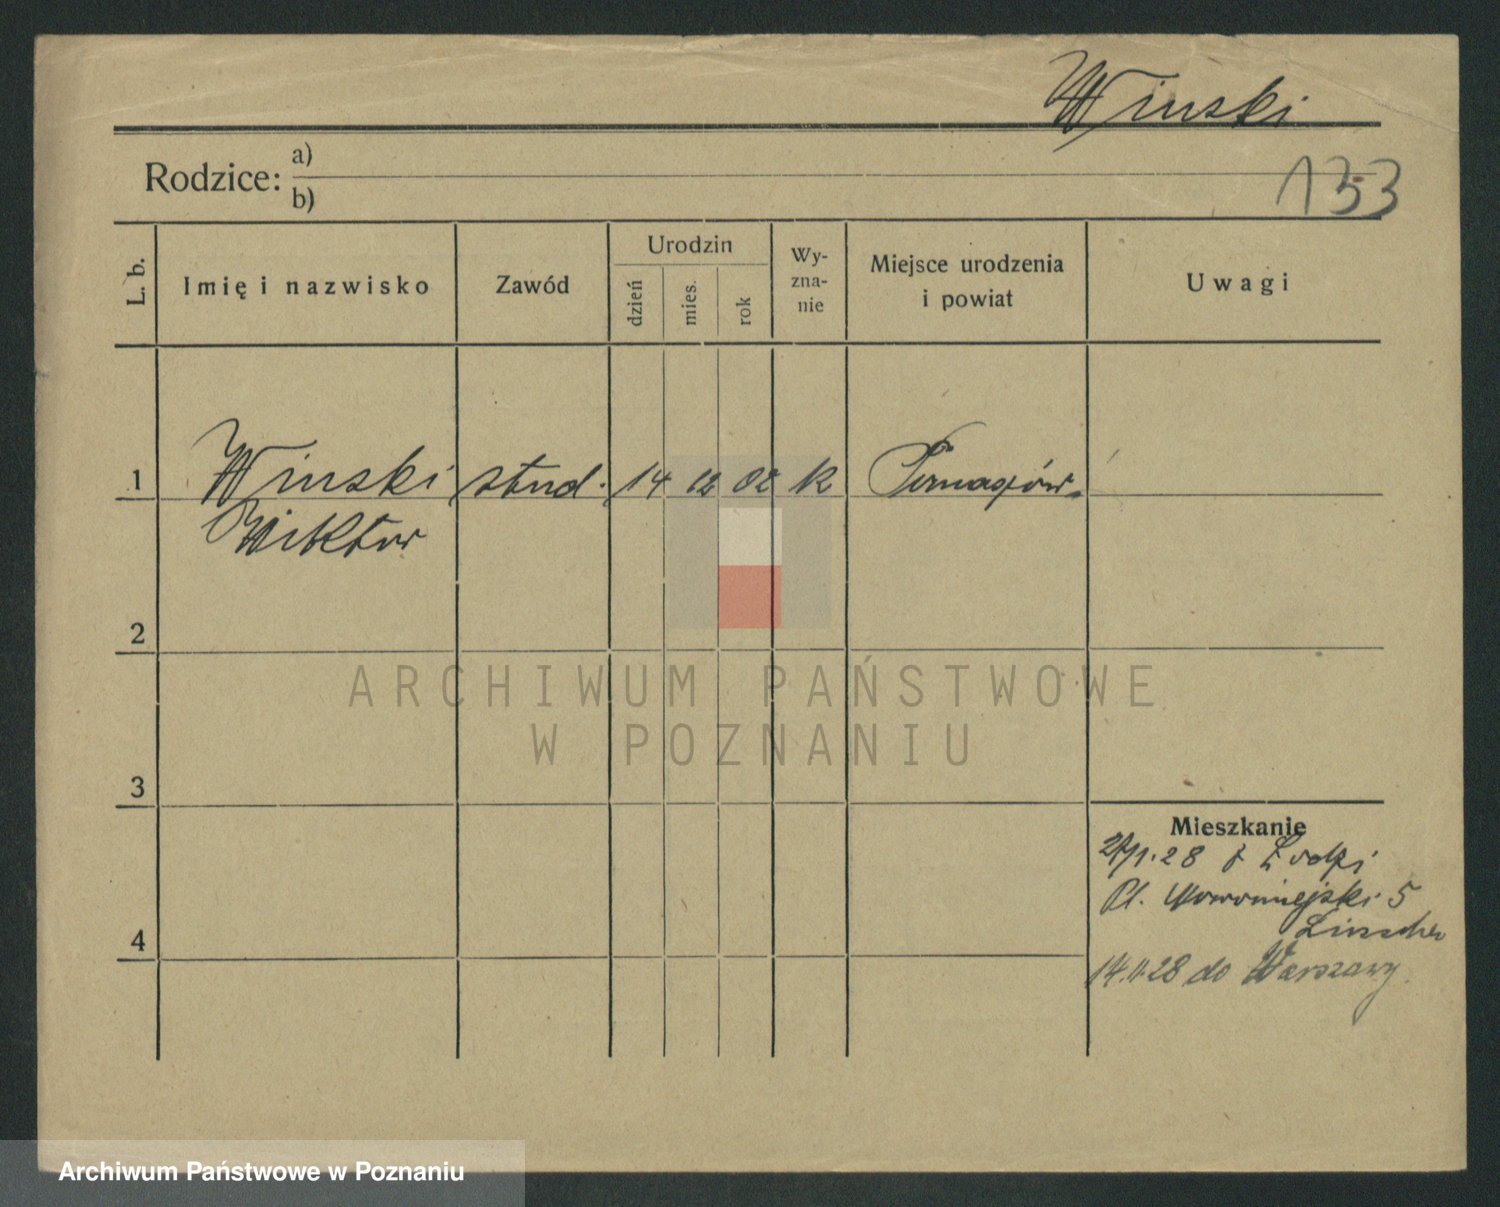 Winski
Rodzice: a)
b)
133
L. b.
Imię i nazwisko
Zawód
Urodzin
dzień
mies.
rok
Wy-
zna-
nie
Miejsce urodzenia
i powiat
Uwagi
1 Winski stud. 14 12 08 k
Wiktor
2
3
4
Mieszkanie
1.28 z Łodzi
Pl. Nowomiejski 5
14.11.28 do Warszawy.
ARCHIWUM PAŃSTWOWE
W POZNANIU
Archiwum Państwowe w Poznaniu